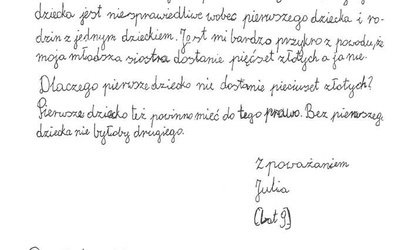 dziecka jest niesprawiedliwe wobec pierwszego dziecka i ro-
dzin z jednym dzieckiem. Jest mi bardzo przykro z powodu, że
moja młodsza siostra dostanie pięćset złotych a ja nie.
Dlaczego pierwsze dziecko nie dostanie pięciuset złotych?
Pierwsze dziecko też powinno mieć do tego prawo. Bez pierwszeg
dziecka nie byłoby drugiego.
Z poważaniem
Julia
(lat 9)